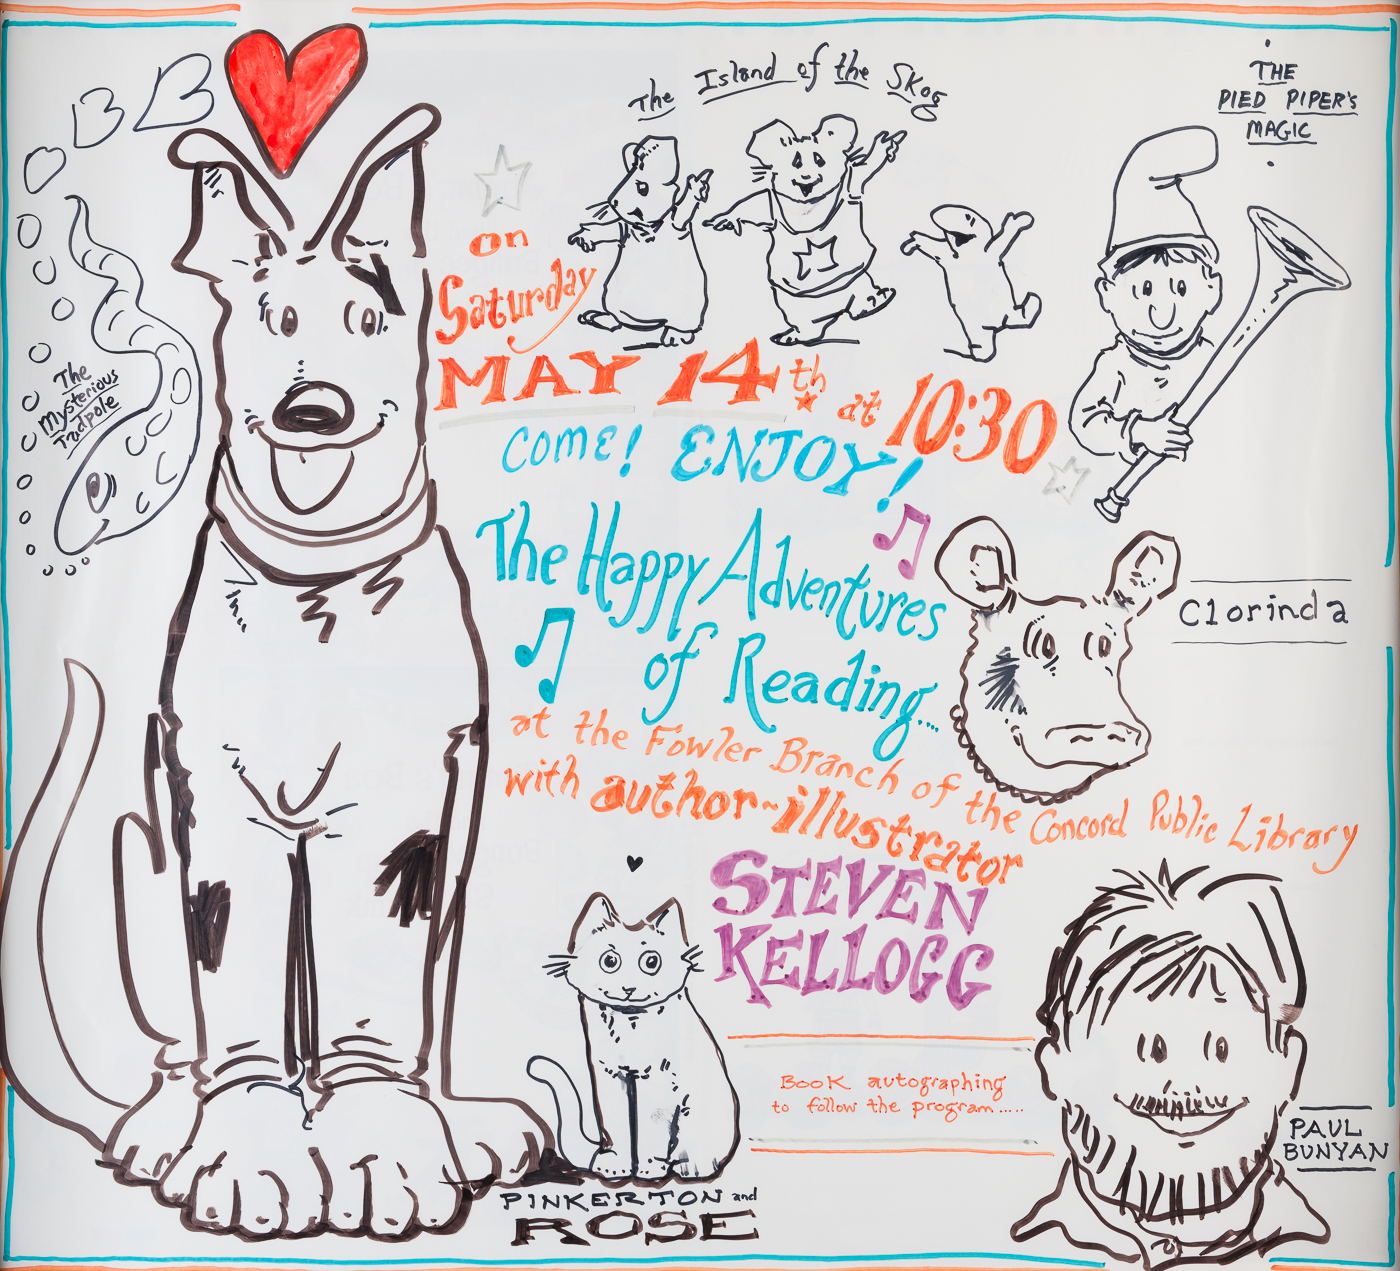 The Island of the Skog
THE
PIED PIPER'S
MAGIC
The
Mysterious
Tadpole
on
Saturday
MAY 14th at 10:30
COME! ENJOY!
The Happy Adventures
of Reading....
at the Fowler Branch of the Concord Public Library
with author-illustrator
STEVEN
KELLOGG
Clorinda
Book autographing
to follow the program.....
PAUL
BUNYAN
PINKERTON and
ROSE